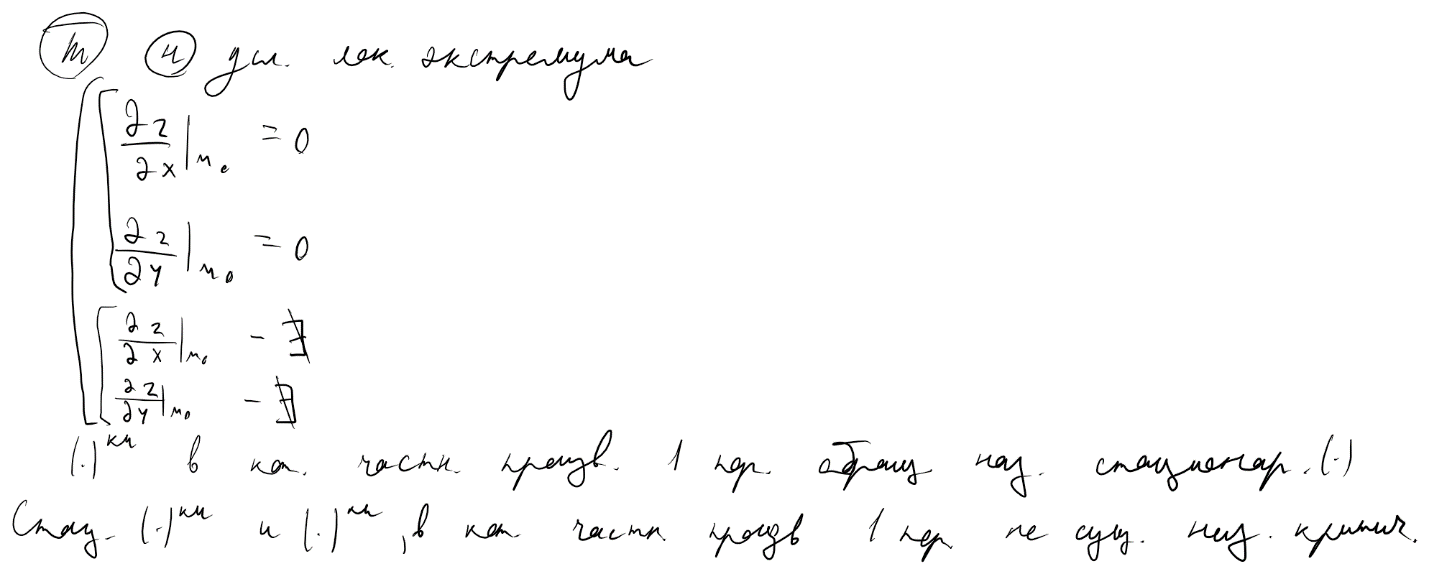 Т Н усл. лок. экстремума
∂z/∂x|M₀ = 0
∂z/∂y|M₀ = 0
∂z/∂x|M₀ - ∄
∂z/∂y|M₀ - ∄
(·)ки в кот. частн. произв. 1 пор. обращ наз. стационар. (·)
Стац. (·)ки и (·)ки, в кот. частн. произв 1 пор. не сущ. наз. критич.